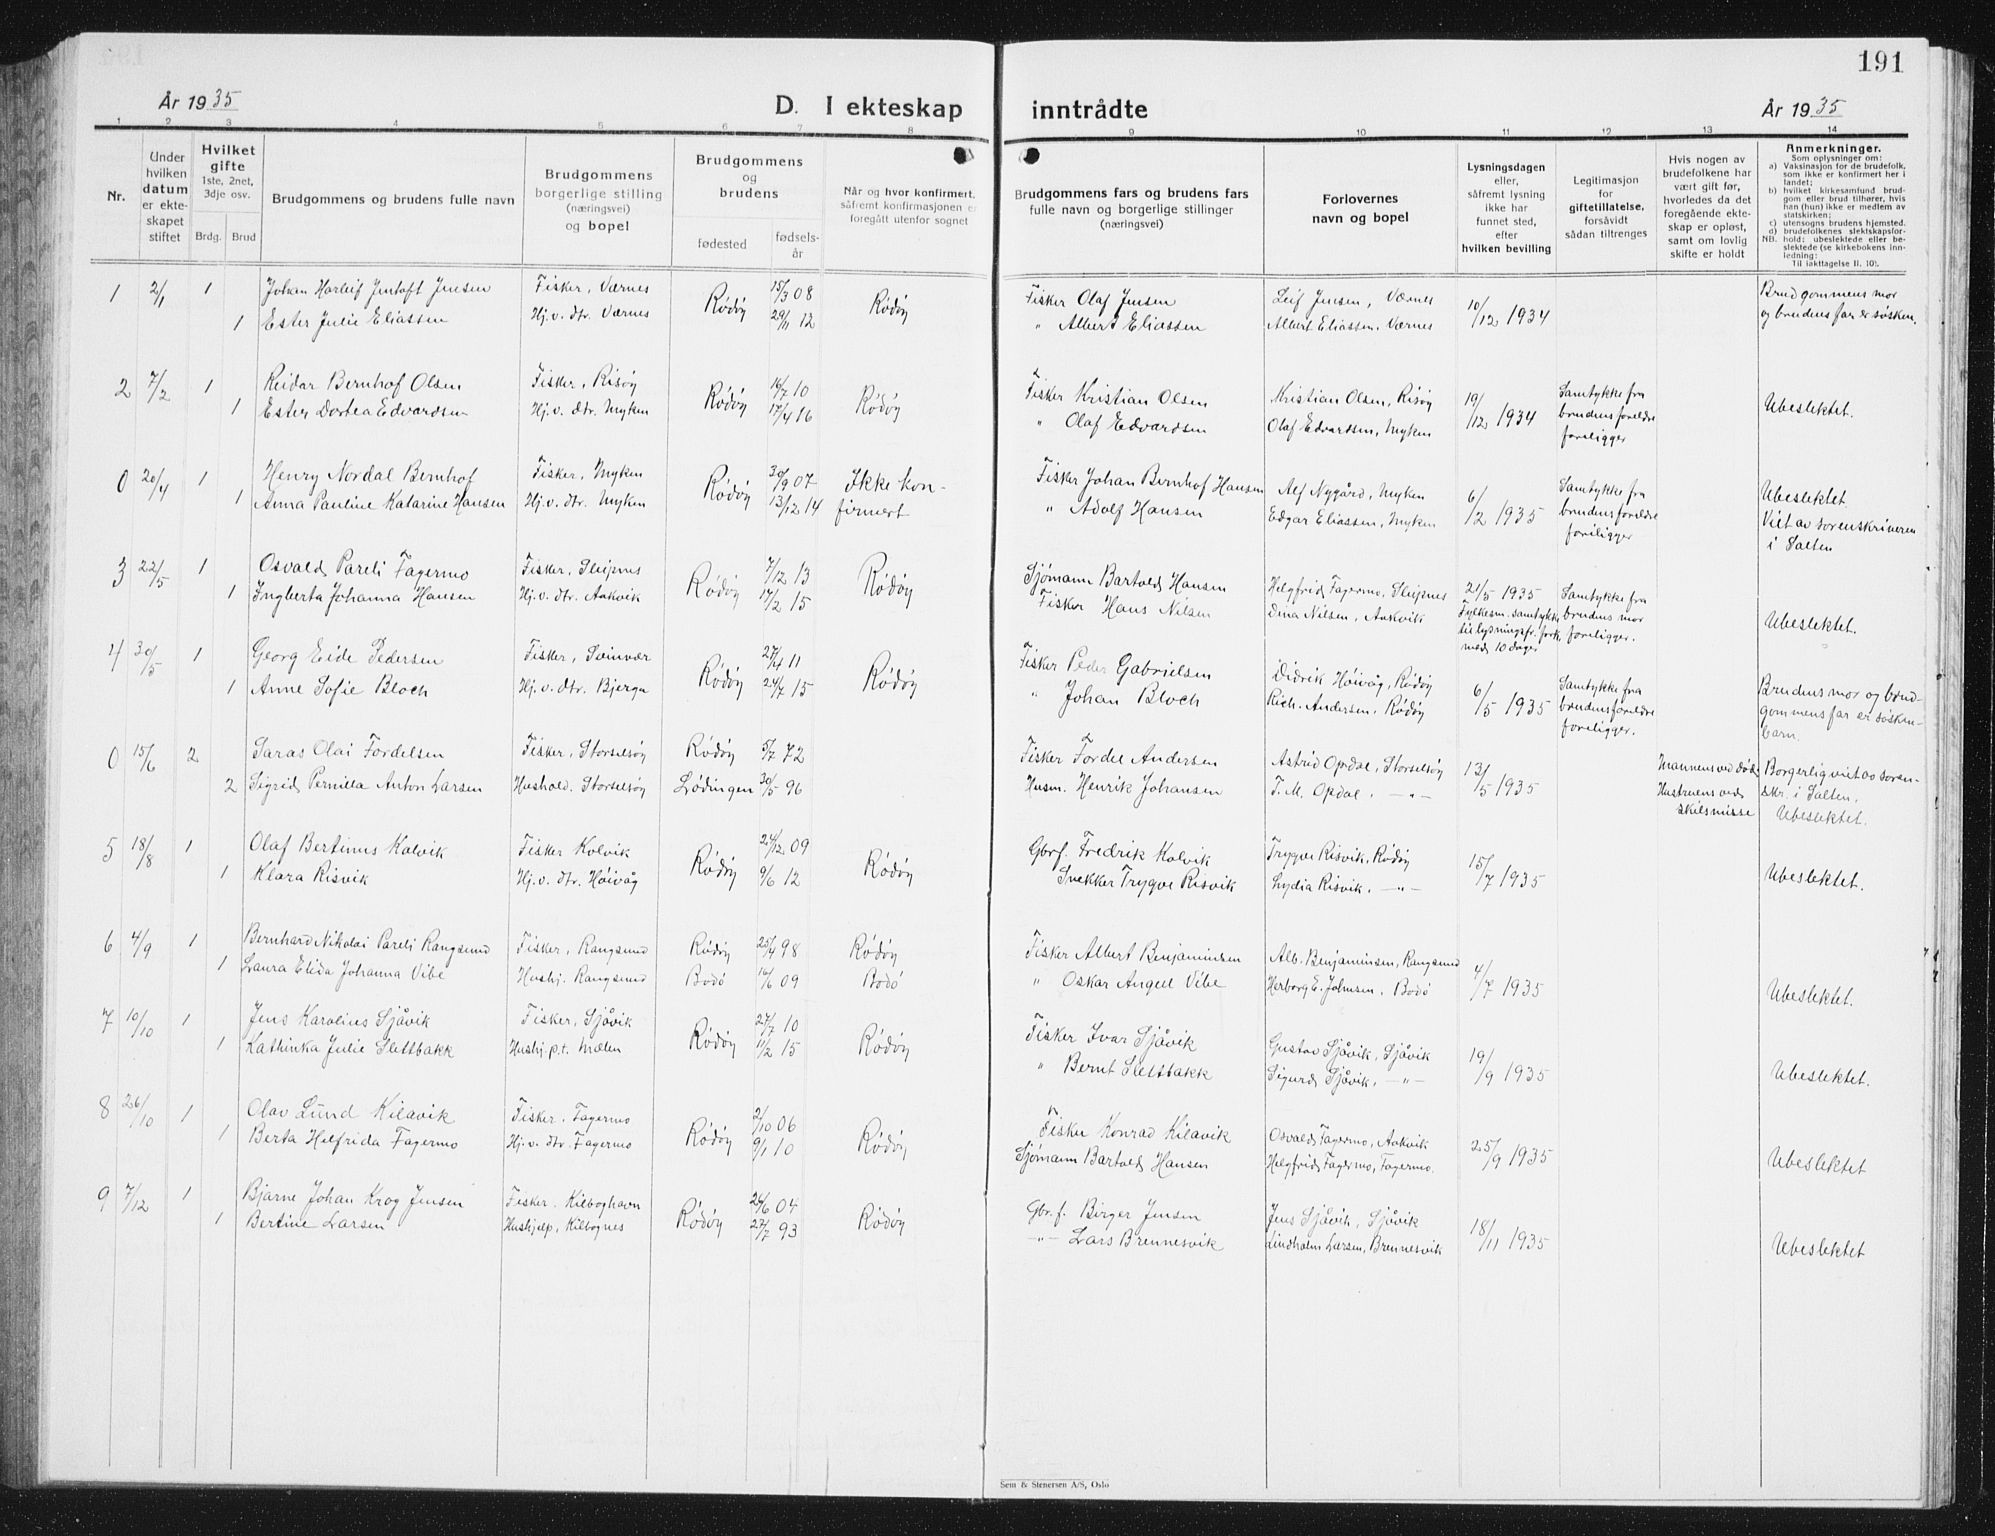 191
År 1935
D. I ekteskap inntrådte
År 1935
1 2 3 4 5 6 7 8 9 10 11 12 13 14
Nr.
Under hvilken datum er ekteskapet stiftet
Hvilket gifte 1ste, 2net, 3dje osv.
Brdg. Brud
Brudgommens og brudens fulle navn
Brudgommens borgerlige stilling (næringsvei) og bopel
Brudgommens og brudens
fødested
fødselsår
Når og hvor konfirmert, såfremt konfirmasjonen er foregått utenfor sognet
Brudgommens fars og brudens fars fulle navn og borgerlige stillinger (næringsvei)
Forlovernes navn og bopel
Lysningsdagen eller, såfremt lysning ikke har funnet sted, efter hvilken bevilling
Legitimasjon for giftetillatelse, forsåvidt sådan tiltrenges
Hvis nogen av brudefolkene har vært gift før, hvorledes da det foregående ekteskap er opløst, samt om lovlig skifte er holdt
Anmerkninger.
Som oplysninger om:
a) Vaksinasjon for de brudefolk, som ikke er konfirmert her i landet;
b) hvilket kirkesamfund brudgom eller brud tilhører, hvis han (hun) ikke er medlem av statskirken;
c) utensogns brudens hjemsted.
d) brudefolkenes slektskapsforhold: ubeslektede eller beslektede (se kirkebokens innledning:
NB. Til iakttagelse II. 10).
1 2/1 1 Johan Harleif Jentoft Jensen Fisker, Værnes Rødøy 15/3 08 Rødøy Fisker Olaf Jensen Leif Jensen, Værnes 10/12 1934 Brudgommens mor
1 Ester Julie Eliassen Hj.v. dtr. Værnes 29/11 12 " Albert Eliassen Albert Eliassen, Værnes og brudens far er søsken.
2 7/2 1 Reidar Bernhof Olsen Fisker, Risøy Rødøy 16/7 10 Rødøy Fisker Kristian Olsen Kristian Olsen, Risøy 19/12 1934 Samtykke fra brudens foreldre foreligger Ubeslektet.
1 Ester Dortea Edvardsen Hj.v. dtr. Myken 17/4 16 " Olaf Edvardsen Olaf Edvardsen, Myken
0 20/4 1 Henry Nordal Bernhof Fisker, Myken Rødøy 30/9 07 Ikke kon- Fisker Johan Bernhof Hansen Alf Nygård, Myken 6/2 1935 Samtykke fra brudens foreldre foreligger Ubeslektet
1 Anna Pauline Katarine Hansen Hj.v. dtr. Myken 13/12 14 firmert " Adolf Hansen Edgar Eliassen, Myken Viet av sorenskriveren i Salten
3 22/5 1 Osvald Pareli Fagermo Fisker, Sleipnes Rødøy 7/12 13 Rødøy Sjømann Bartold Hansen Helgfrid Fagermo, Sleipnes 21/5 1935 Samtykke fra brudens mor foreligger. Ubeslektet.
1 Ingberta Johanna Hansen Hj.v. dtr. Aakvik 17/2 15 Fisker Hans Nilsen Dina Nilsen, Aakvik Fylkesm. samtykke til lysningsfr. fork. med 10 dager
4 30/5 1 Georg Eide Pedersen Fisker, Sleinvær Rødøy 27/4 11 Rødøy Fisker Peder Gabrielsen Didrik Høivåg, Rødøy 6/5 1935 Samtykke fra brudens foreldre foreligger. Brudens mor og brud-
1 Anne Sofie Bloch Hj.v. dtr. Bjerga 24/7 15 " Johan Bloch Rich. Andersen, Rødøy gommens far er søskenbarn.
0 15/6 2 Saras Olai Fordelsen Fisker, Storselsøy Rødøy 5/7 72 Fisker Fordel Andersen Astrid Opdal, Storselsøy 13/5 1935 Mannens ved død. Borgerlig viet av soren-
2 Sigrid Pernilla Anton Larsen Hushold. Storselsøy Lødingen 30/5 96 Husm. Henrik Johansen T. M. Opdal. —"— Hustruens ved skilsmisse skr. i Salten. Ubeslektet.
5 18/8 1 Olaf Bertinus Kolvik Fisker Kolvik Rødøy 24/12 09 Rødøy Gbrf. Fredrik Kolvik Trygve Risvik, Rødøy 15/7 1935 Ubeslektet.
1 Klara Risvik Hj.v. dtr. Høivåg 9/6 12 Snekker Trygve Risvik Lydia Risvik. —"—
6 4/9 1 Bernhard Nikolai Pareli Rangsund Fisker, Rangsund Rødøy 25/4 98 Rødøy Fisker Albert Benjaminsen Alb. Benjaminsen, Rangsund 4/7 1935 Ubeslektet.
1 Laura Elida Johanna Vibe Hushj. Rangsund Bodø 16/6 09 Bodø " Oskar Angell Vibe Herborg E. Johnsen. Bodø
7 10/10 1 Jens Karolius Sjåvik Fisker, Sjåvik Rødøy 27/7 10 Rødøy Fisker Ivar Sjåvik Gustav Sjåvik, Sjåvik 19/9 1935 Ubeslektet.
1 Kathinka Julie Slettbakk Hushj. p.t. Mælen 11/2 15 " Bernt Slettbakk Sigurd Sjåvik. —"—
8 26/10 1 Olav Lund Kilavik Fisker. Fagermo Rødøy 2/10 06 Rødøy Fisker Konrad Kilavik Osvald Fagermo, Aakvik 25/9 1935 Ubeslektet
1 Berta Helfrida Fagermo Hj.v. dtr. Fagermo 9/1 10 Sjømann Bartold Hansen Helgfrid Fagermo, Fagermo.
9 7/12 1 Bjarne Johan Krog Jensen Fisker. Kilboghavn Rødøy 26/6 04 Rødøy Gbr.f. Birger Jensen Jens Sjåvik, Sjåvik 18/11 1935 Ubeslektet
1 Bertine Larsen Hushjelp, Kilbognes 27/7 93 —"— Lars Brennesvik Lindholm Larsen, Brennesvik
Sem & Stenersen A/S, Oslo